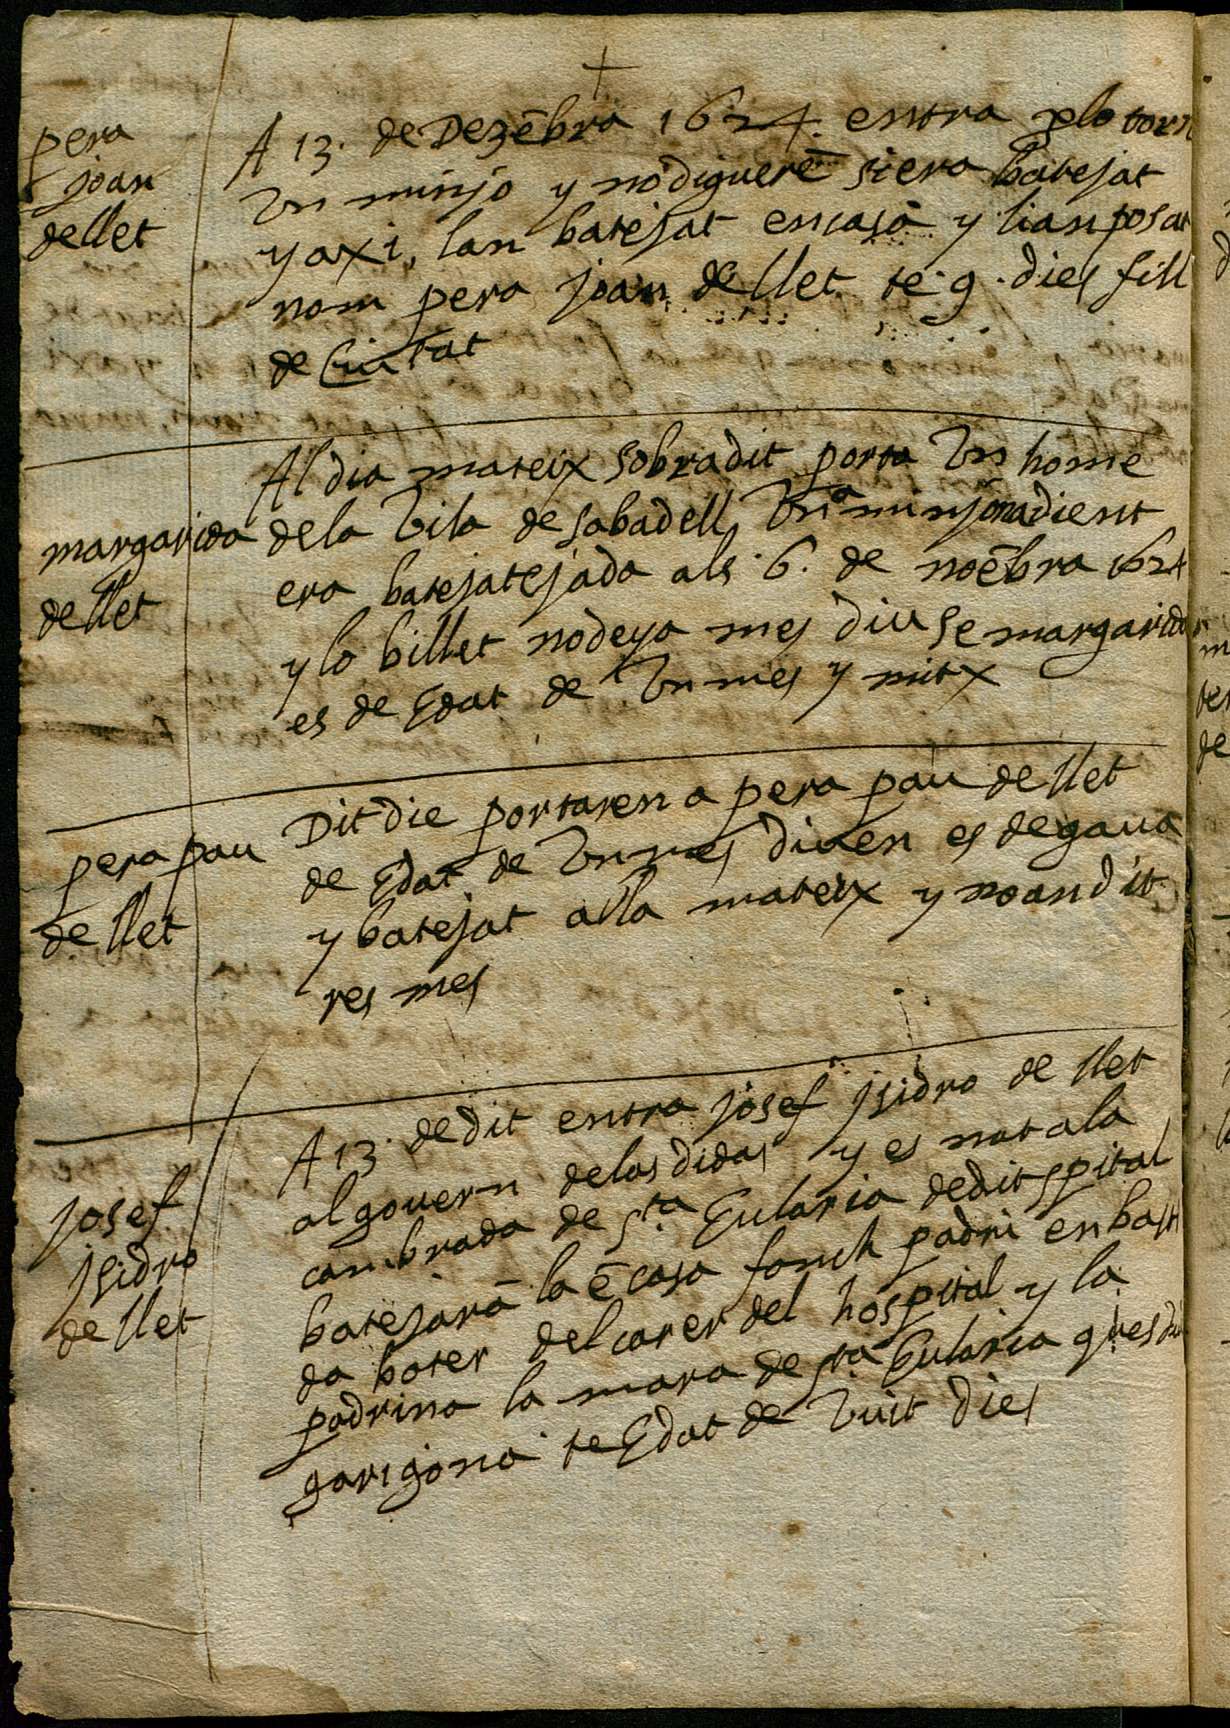 +
pera
joan
dellet
A 13. de Dezẽbra 1624. entra plo torn
Vn minjo y nodiguerẽ siera batejat
y axi, lan batejat encasa y lianposat
nom pera joan dellet te 9. dies fill
de Ciutat
margarida
dellet
Al dia mateix sobradit porta Vn home
dela Vila de sabadell Vna minjona dient
era batejatejada als 6. de noẽbra 1624
y lo billet nodeya mes diu se margarida
es de Edat de Vn mes y mitx
pera pau
de llet
Dit die portaren a pera pau de llet
de Edat de Vn mes diuen es de gaua
y batejat alla mateix y noandit
res mes
Josef
jsidro
de llet
A 13. dedit entra josef jsidro de llet
al gouern delas didas y es nat ala
cambrada de sta Eularia dedit spital
batejarã la ẽ casa fonch padri en bast
da boter del carer del hospital y la
padrina la mara de sta Eularia ques diu
garigona te Edat de Vuit dies